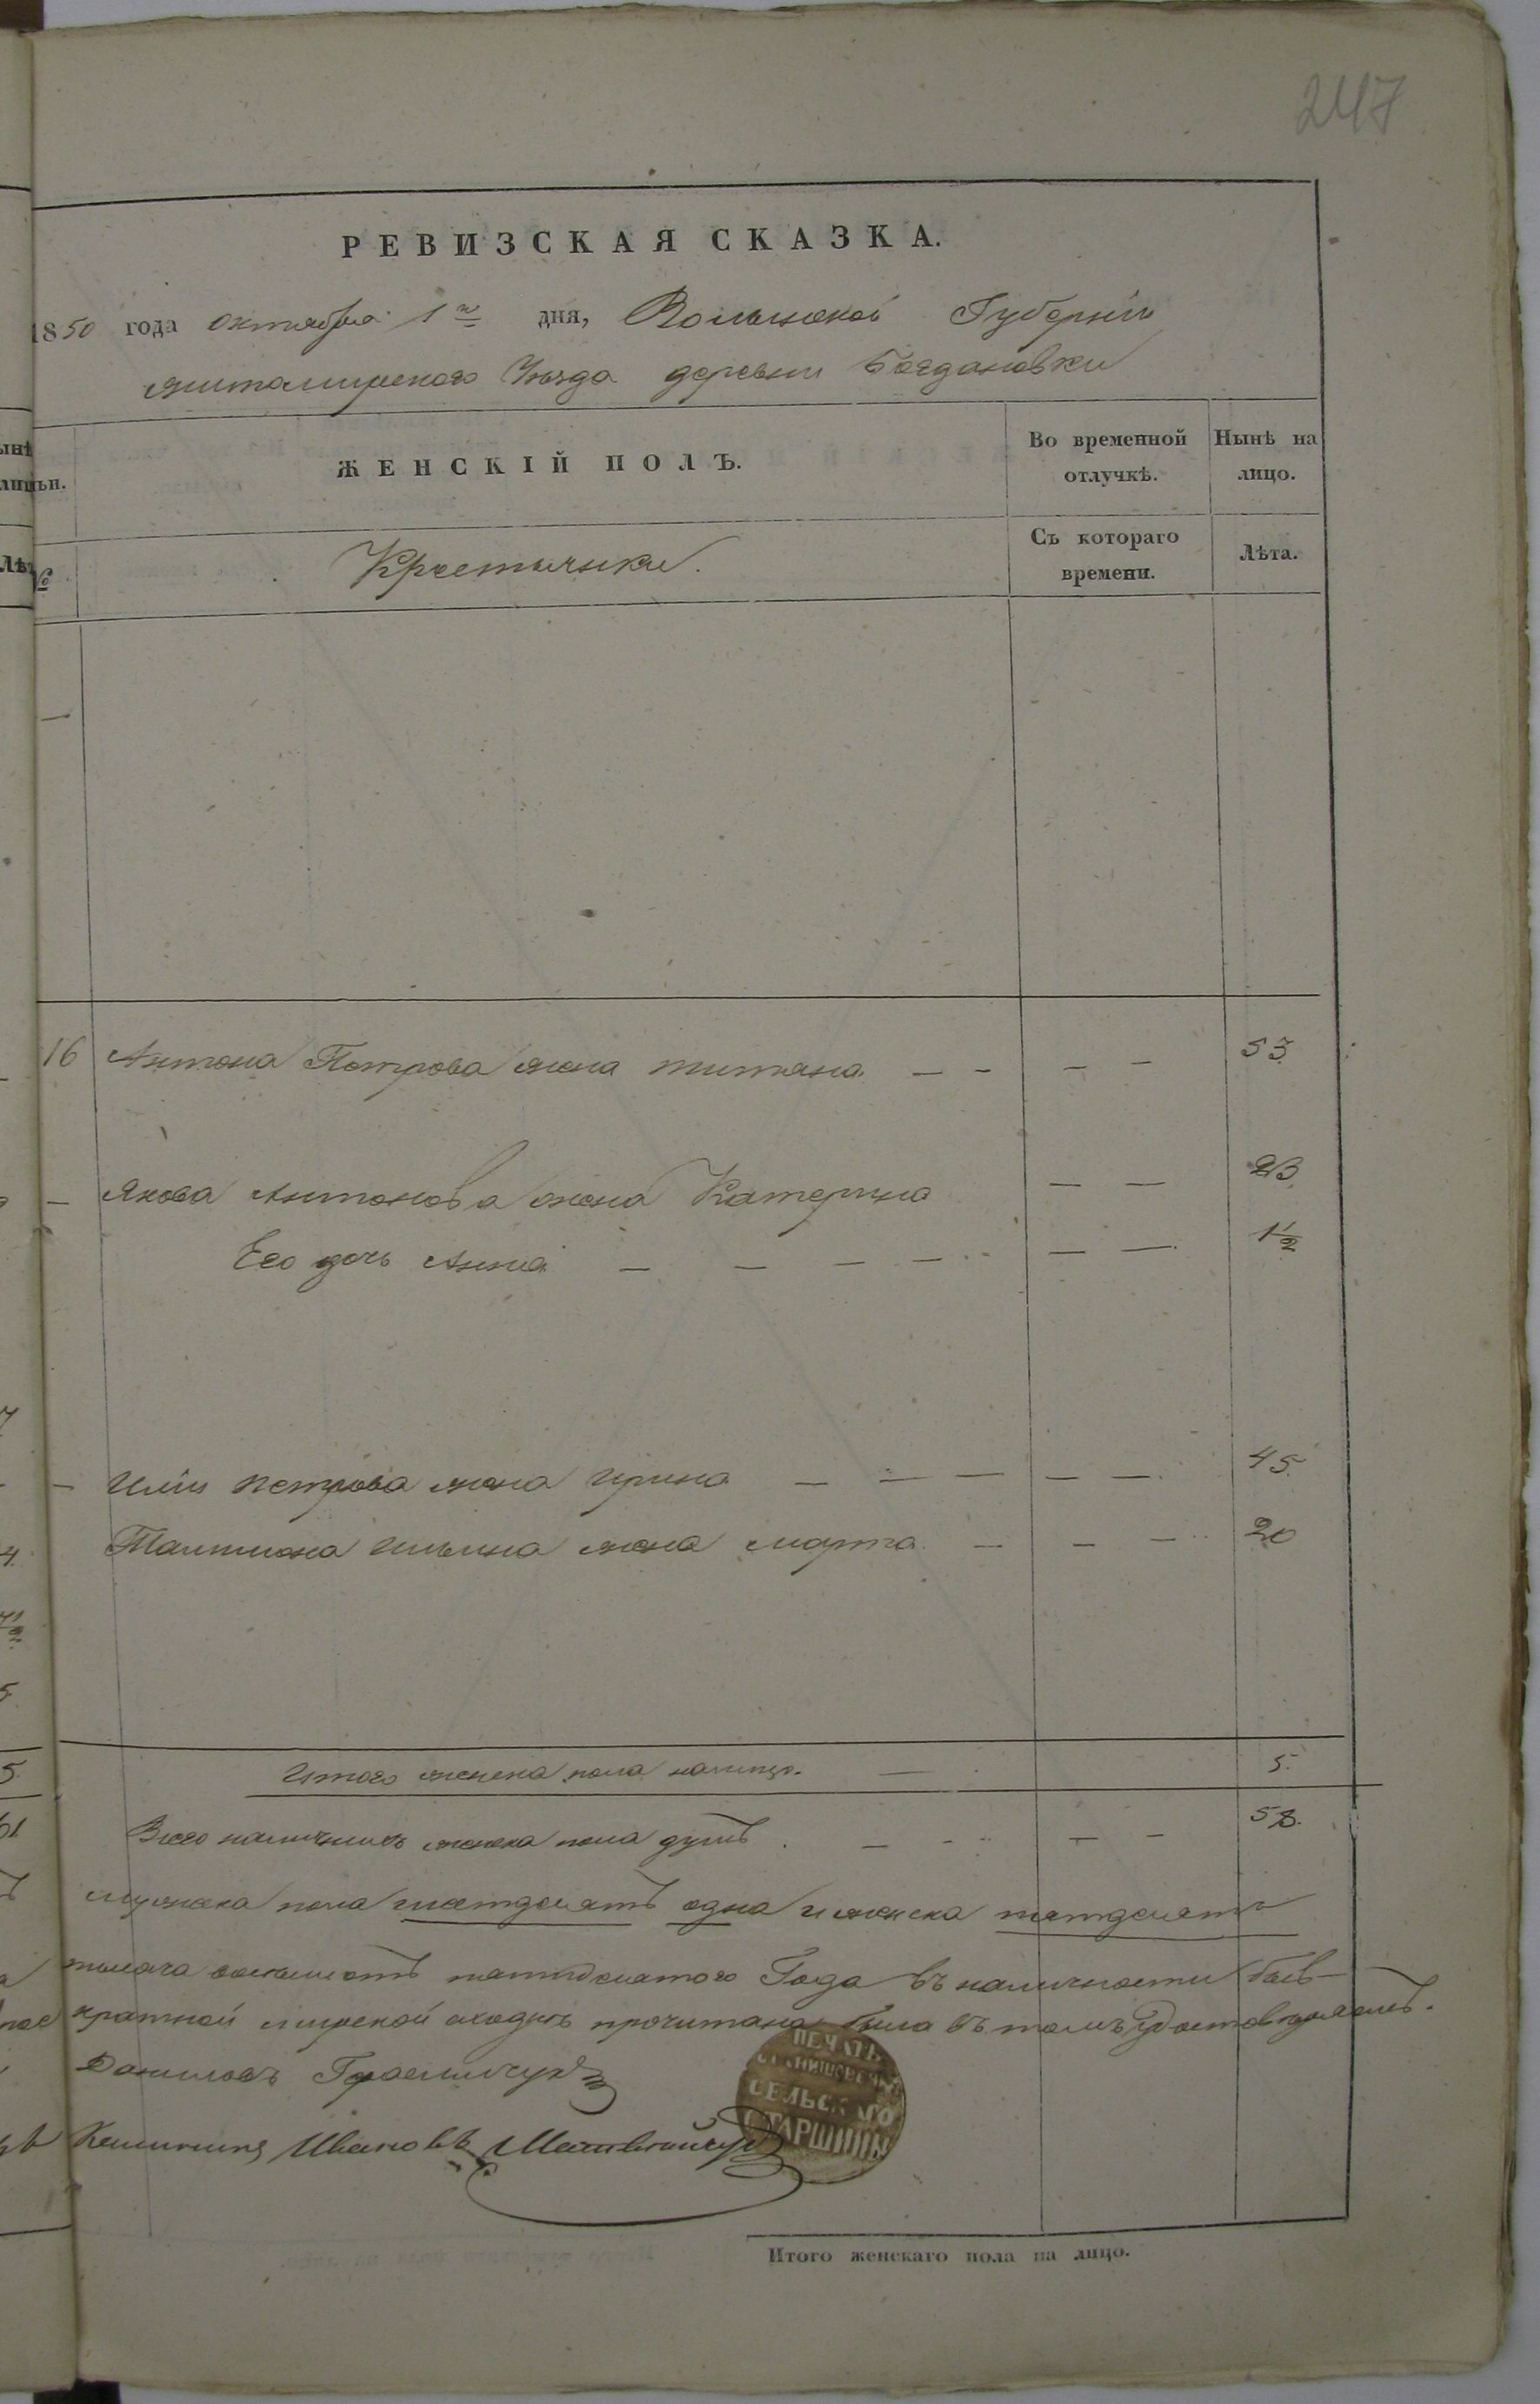 247
РЕВИЗСКАЯ СКАЗКА.
1850 года октября 1го дня, Волынской Губернiи
житомирского Уезда деревни Богдановки
ЖЕНСКIЙ ПОЛЪ.
Во временной отлучкѣ.
Нынѣ на лицо.
№
Крестьянки.
Съ котораго времени.
Лѣта.
—
16 Антона Петрова жена титяна — — — — 53.
— Якова Антонова жена Катерина — — 23.
Его дочь Анна — — — — — — 1½
— Илiи Петрова жена Ирина — — — — — 45.
жена марта — — — 20
Итого женска пола налицо. — 5.
Всего наличныхъ женска пола душъ — — — — 58.
мужеска пола шестдесятъ одна и женска пятдесятъ
тысяча восемьсотъ пятидесятого Года въ наличности
кратной мирской сходке прочитана была въ томъ удостовѣряемъ.
Даниловъ Герасимчукъ
Ивановъ Матвейчукъ
ПЕЧАТЬ
СЕЛЬСКАГО
СТАРШИНЫ
Итого женскаго пола на лицо.